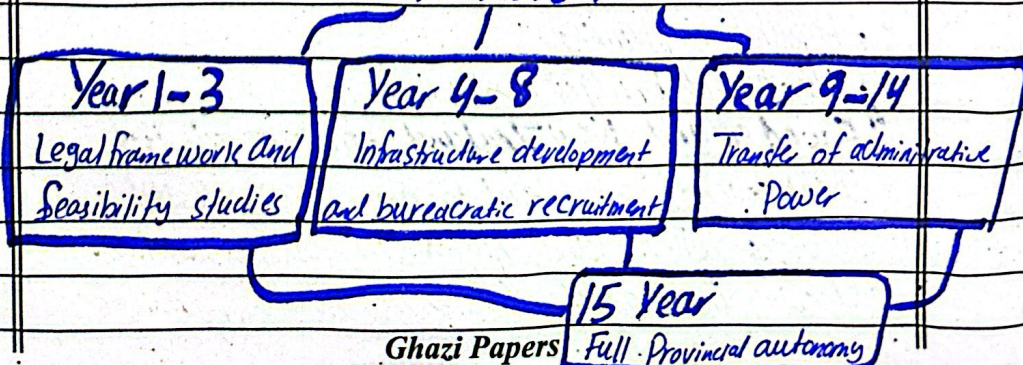 Year 1-3
Legal framework and
feasibility studies
Year 4-8
Infrastructure development
and bureacratic recruitment
Year 9-14
Transfer of administrative
Power
15 Year
Full Provincial autonomy
Ghazi Papers